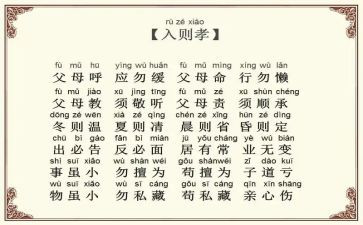 rù zé xiào
【入则孝】
fù mǔ hū yìng wù huǎn fù mǔ mìng xíng wù lǎn
父母呼 应勿缓 父母命 行勿懒
fù mǔ jiào xū jìng tīng fù mǔ zé xū shùn chéng
父母教 须敬听 父母责 须顺承
dōng zé wēn xià zé qìng chén zé xǐng hūn zé dìng
冬则温 夏则清 晨则省 昏则定
chū bì gào fǎn bì miàn jū yǒu cháng yè wú biàn
出必告 反必面 居有常 业无变
shì suī xiǎo wù shàn wéi gǒu shàn wéi zǐ dào kuī
事虽小 勿擅为 苟擅为 子道亏
wù suī xiǎo wù sī cáng gǒu sī cáng qīn xīn shāng
物虽小 勿私藏 苟私藏 亲心伤